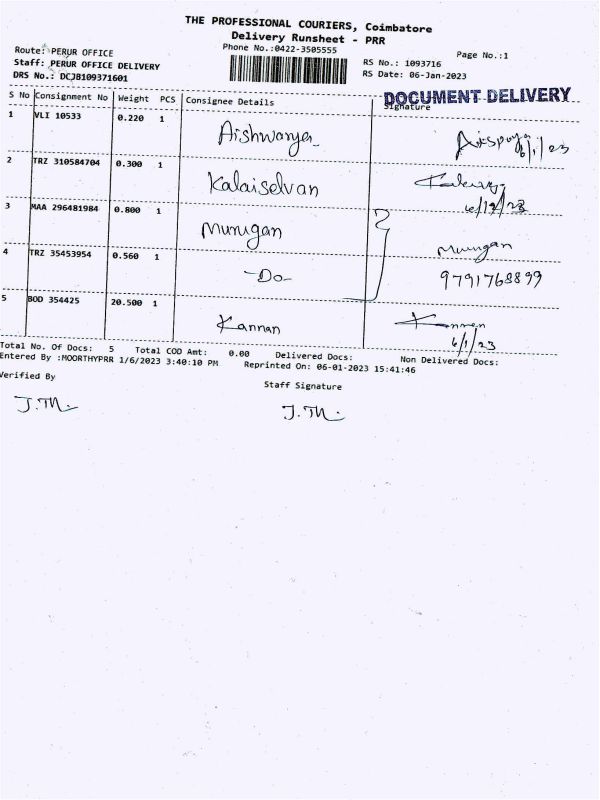 THE PROFESSIONAL COURIERS, Coimbatore
Delivery Runsheet - PRR
Phone No.:0422-3505555
Page No.:1
Route: PERUR OFFICE
Staff: PERUR OFFICE DELIVERY
DRS No.: DCJB109371601
RS No.: 1093716
RS Date: 06-Jan-2023
DOCUMENT DELIVERY
S No Consignment No Weight PCS Consignee Details Signature
1 VLI 10533 0.220 1 Aishwarya 6/1/23
2 TRZ 310584704 0.300 1 Kalaiselvan
3 MAA 296481984 0.800 1 Murugan Murugan
4 TRZ 35453954 0.560 1 -Do- 9791768899
5 BOD 354425 20.500 1 Kannan Kannan
6/1/23
Total No. Of Docs: 5 Total COD Amt: 0.00 Delivered Docs: Non Delivered Docs:
Entered By :MOORTHYPRR 1/6/2023 3:40:10 PM Reprinted On: 06-01-2023 15:41:46
Verified By Staff Signature